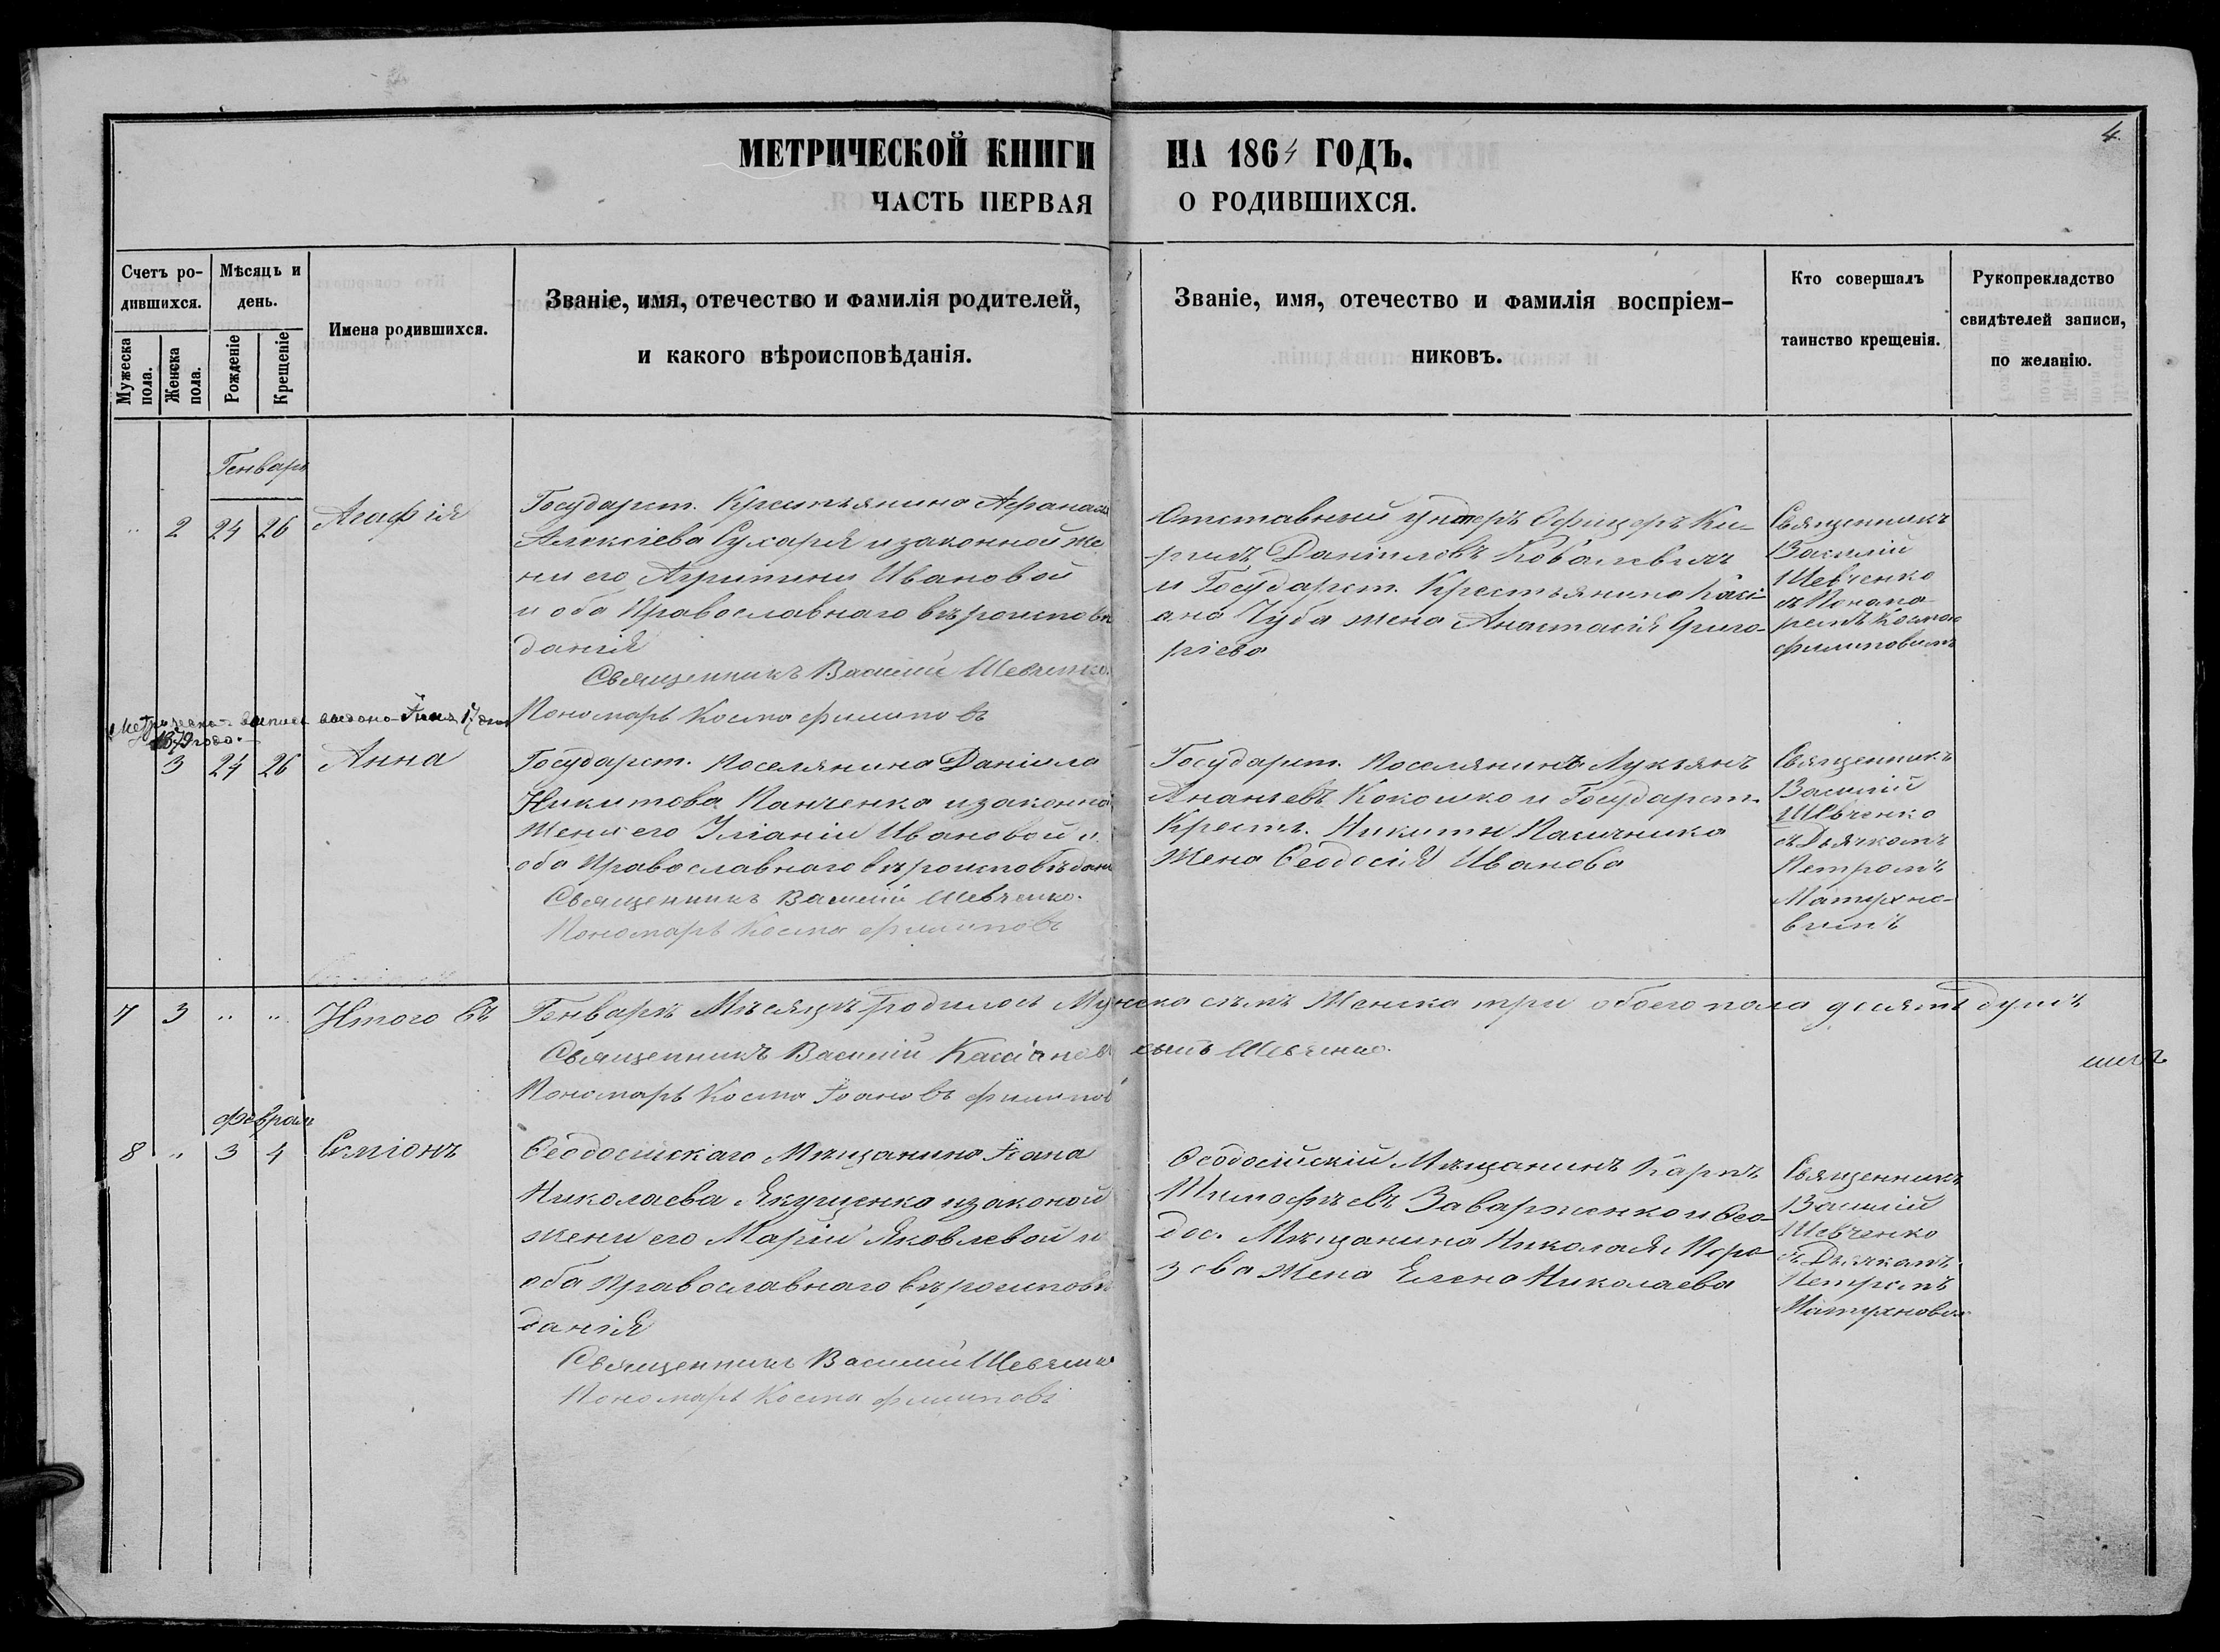 4.
МЕТРИЧЕСКОЙ КНИГИ НА 1864 ГОДЪ.
ЧАСТЬ ПЕРВАЯ О РОДИВШИХСЯ.
Счетъ ро-
дившихся.
Мужеска
пола.
Женска
пола.
Мѣсяцъ и
день.
Рожденіе
Крещеніе
Имена родившихся.
Званіе, имя, отечество и фамилія родителей,
и какого вѣроисповѣданія.
Званіе, имя, отечество и фамилія воспріем-
никовъ.
Кто совершалъ
таинство крещенія.
Рукоприкладство
свидѣтелей записи,
по желанію.
Генваръ
" 2 24 26 Агафія
Государст. Крестьянина Афанасія
Алексіева Сухаря и законной же
ни его Агрипини Ивановой
и оба Православнаго вѣроисповѣ
данія
Священникъ Василій Шевченко.
Пономарь Косма Филиповъ
Отставный унтеръ Офицеръ Ки-
рилъ Даніиловъ Ковалевичъ
и Государст. Крестьянина Касі-
ана Чуба жена Анастасія Григо-
ріева
Священникъ
Василій
Шевченко
съ Понома
ремъ Космою
Филиповимъ
1879 года.
3 24 26 Анна
Государст. Поселянина Даніила
Никитова Панченка и законной
жени его Уліаніи Ивановой и
оба Православнаго вѣроисповѣдані
Священникъ Василій Шевченко.
Пономарь Косма Филиповъ
Государст. Поселянинъ Лукіянъ
Ананьевъ Кокошко и Государст.
Крестъ. Никити Пасичника
жена Феодосія Иванова
Священникъ
Василій
Шевченко
съ Дьячкомъ
Петромъ
Матухно-
вимъ
7 3 " " Итого въ Генварѣ Мѣсяцѣ родилось Мужеска семъ Женска три обоего пола десять душъ
Священникъ Василій Кассіановъ синъ Шевченко.
Пономарь Косма Іоановъ Филиповъ
Феврал
8 " 3 4 Симіонъ
Феодосійскаго Мѣщанина Іоана
Николаева Якущенка и законой
жени его Маріи Яковлевой и
оба Православнаго вѣроисповѣ
данія
Священникъ Василій Шевченко
Пономарь Косма Филиповъ
Феодосійскій Мѣщанинъ Карпъ
Тимофѣевъ Заварженко и Фео-
дос. Мѣщанина Николая Моро
зова жена Елена Николаева
Священникъ
Василій
Шевченко
съ Дьячкомъ
Петромъ
Матухновим